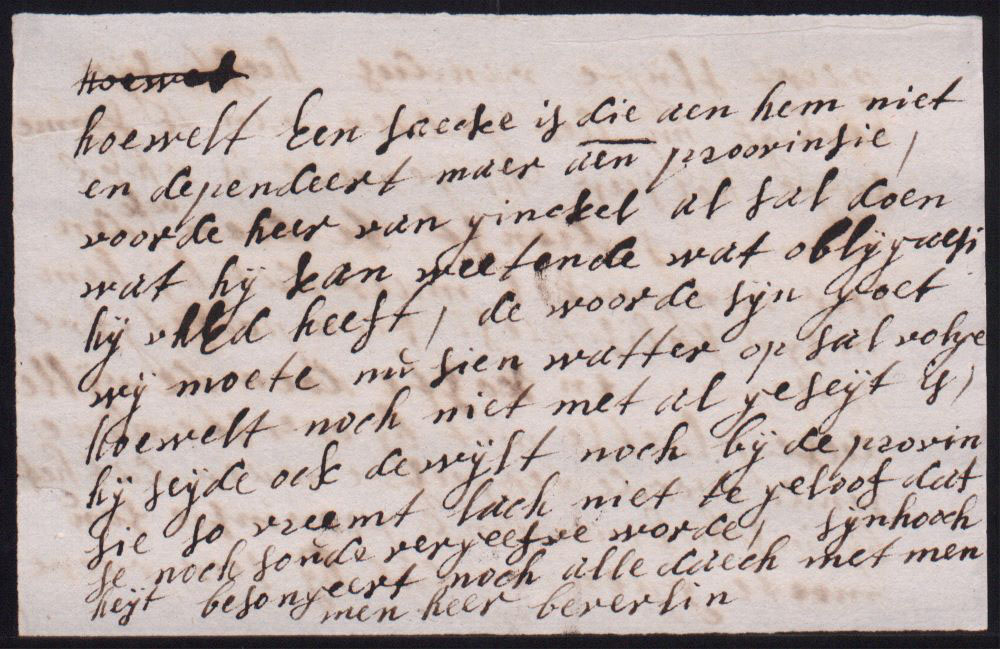 hoewel
hoewelt Een saecke is die aen hem niet
en dependeert maer aen proovinsie,
voorde heer van ginckel al sal doen
wat hÿ kan weetende wat oblÿgaesi
hÿ uEd heeft, de woorde sÿn goet
wÿ moete nu sien watter op sal volge
hoewelt noch niet met al geseÿt is,
hÿ seÿde ock dewÿlt noch bÿ de provin
sie so vreemt lach niet te geloof dat
se noch soude vergeefve worde, sÿnhooch
heÿt besongeert noch alle daech met men
men heer beverlin